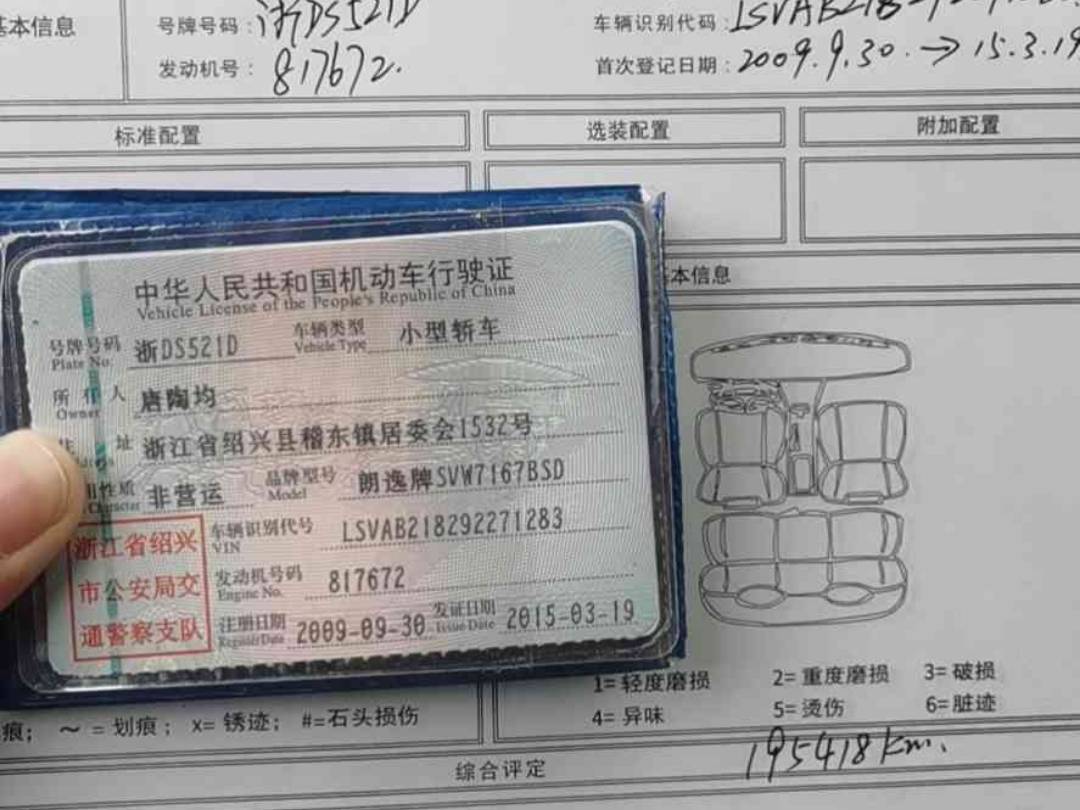 基本信息
号牌号码：浙DS521D
车辆识别代码：LSVAB2182
发动机号：817672.
首次登记日期：2009.9.30. → 15.3.19
标准配置
选装配置
附加配置
本信息
中华人民共和国机动车行驶证
Vehicle License of the People's Republic of China
号牌号码 浙DS521D 车辆类型 小型轿车
Plate No. Vehicle Type
所有人 唐陶均
Owner
址 浙江省绍兴县稽东镇居委会1532号
用性质 非营运 品牌型号 朗逸牌SVW7167BSD
Character Model
浙江省绍兴
市公安局交
通警察支队
车辆识别代号 LSVAB218292271283
VIN
发动机号码 817672
Engine No.
注册日期 2009-09-30 发证日期 2015-03-19
Register Date Issue Date
1=轻度磨损 2=重度磨损 3=破损
4=异味 5=烫伤 6=脏迹
痕； ～=划痕； x=锈迹； #=石头损伤
195418km.
综合评定